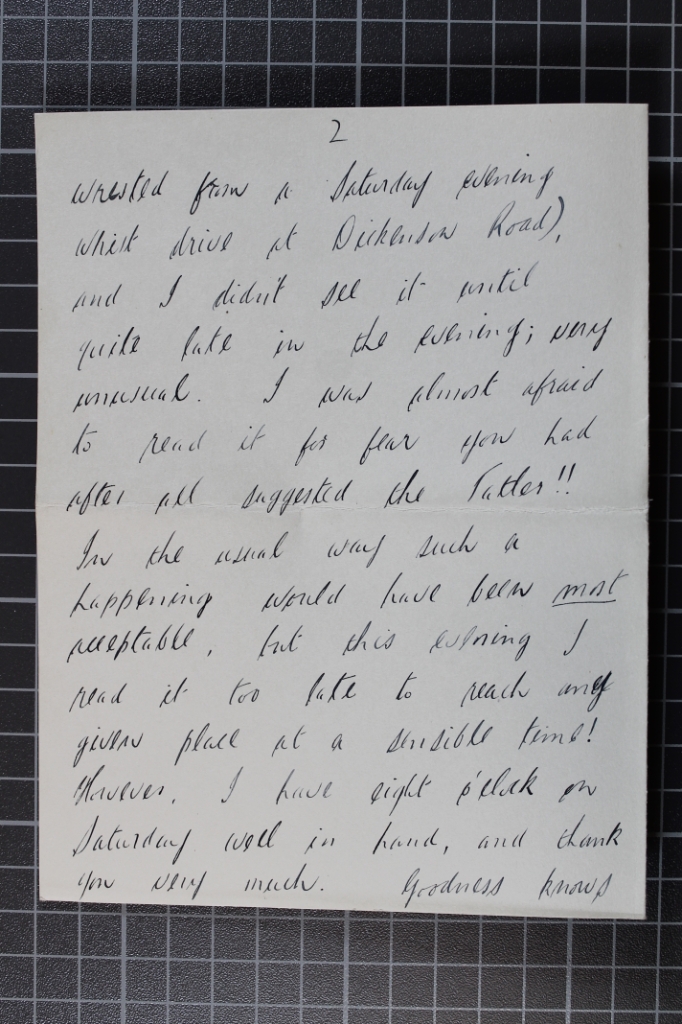 2
wrested from a Saturday evening
whist drive at Dickenson Road),
and I didn't see it until
quite late in the evening; very
unusual. I was almost afraid
to read it for fear you had
after all suggested the Tatler!!
In the usual way such a
happening would have been most
acceptable, but this evening I
read it too late to reach any
given place at a sensible time!
However, I have eight o'clock on
Saturday well in hand, and thank
you very much. Goodness knows